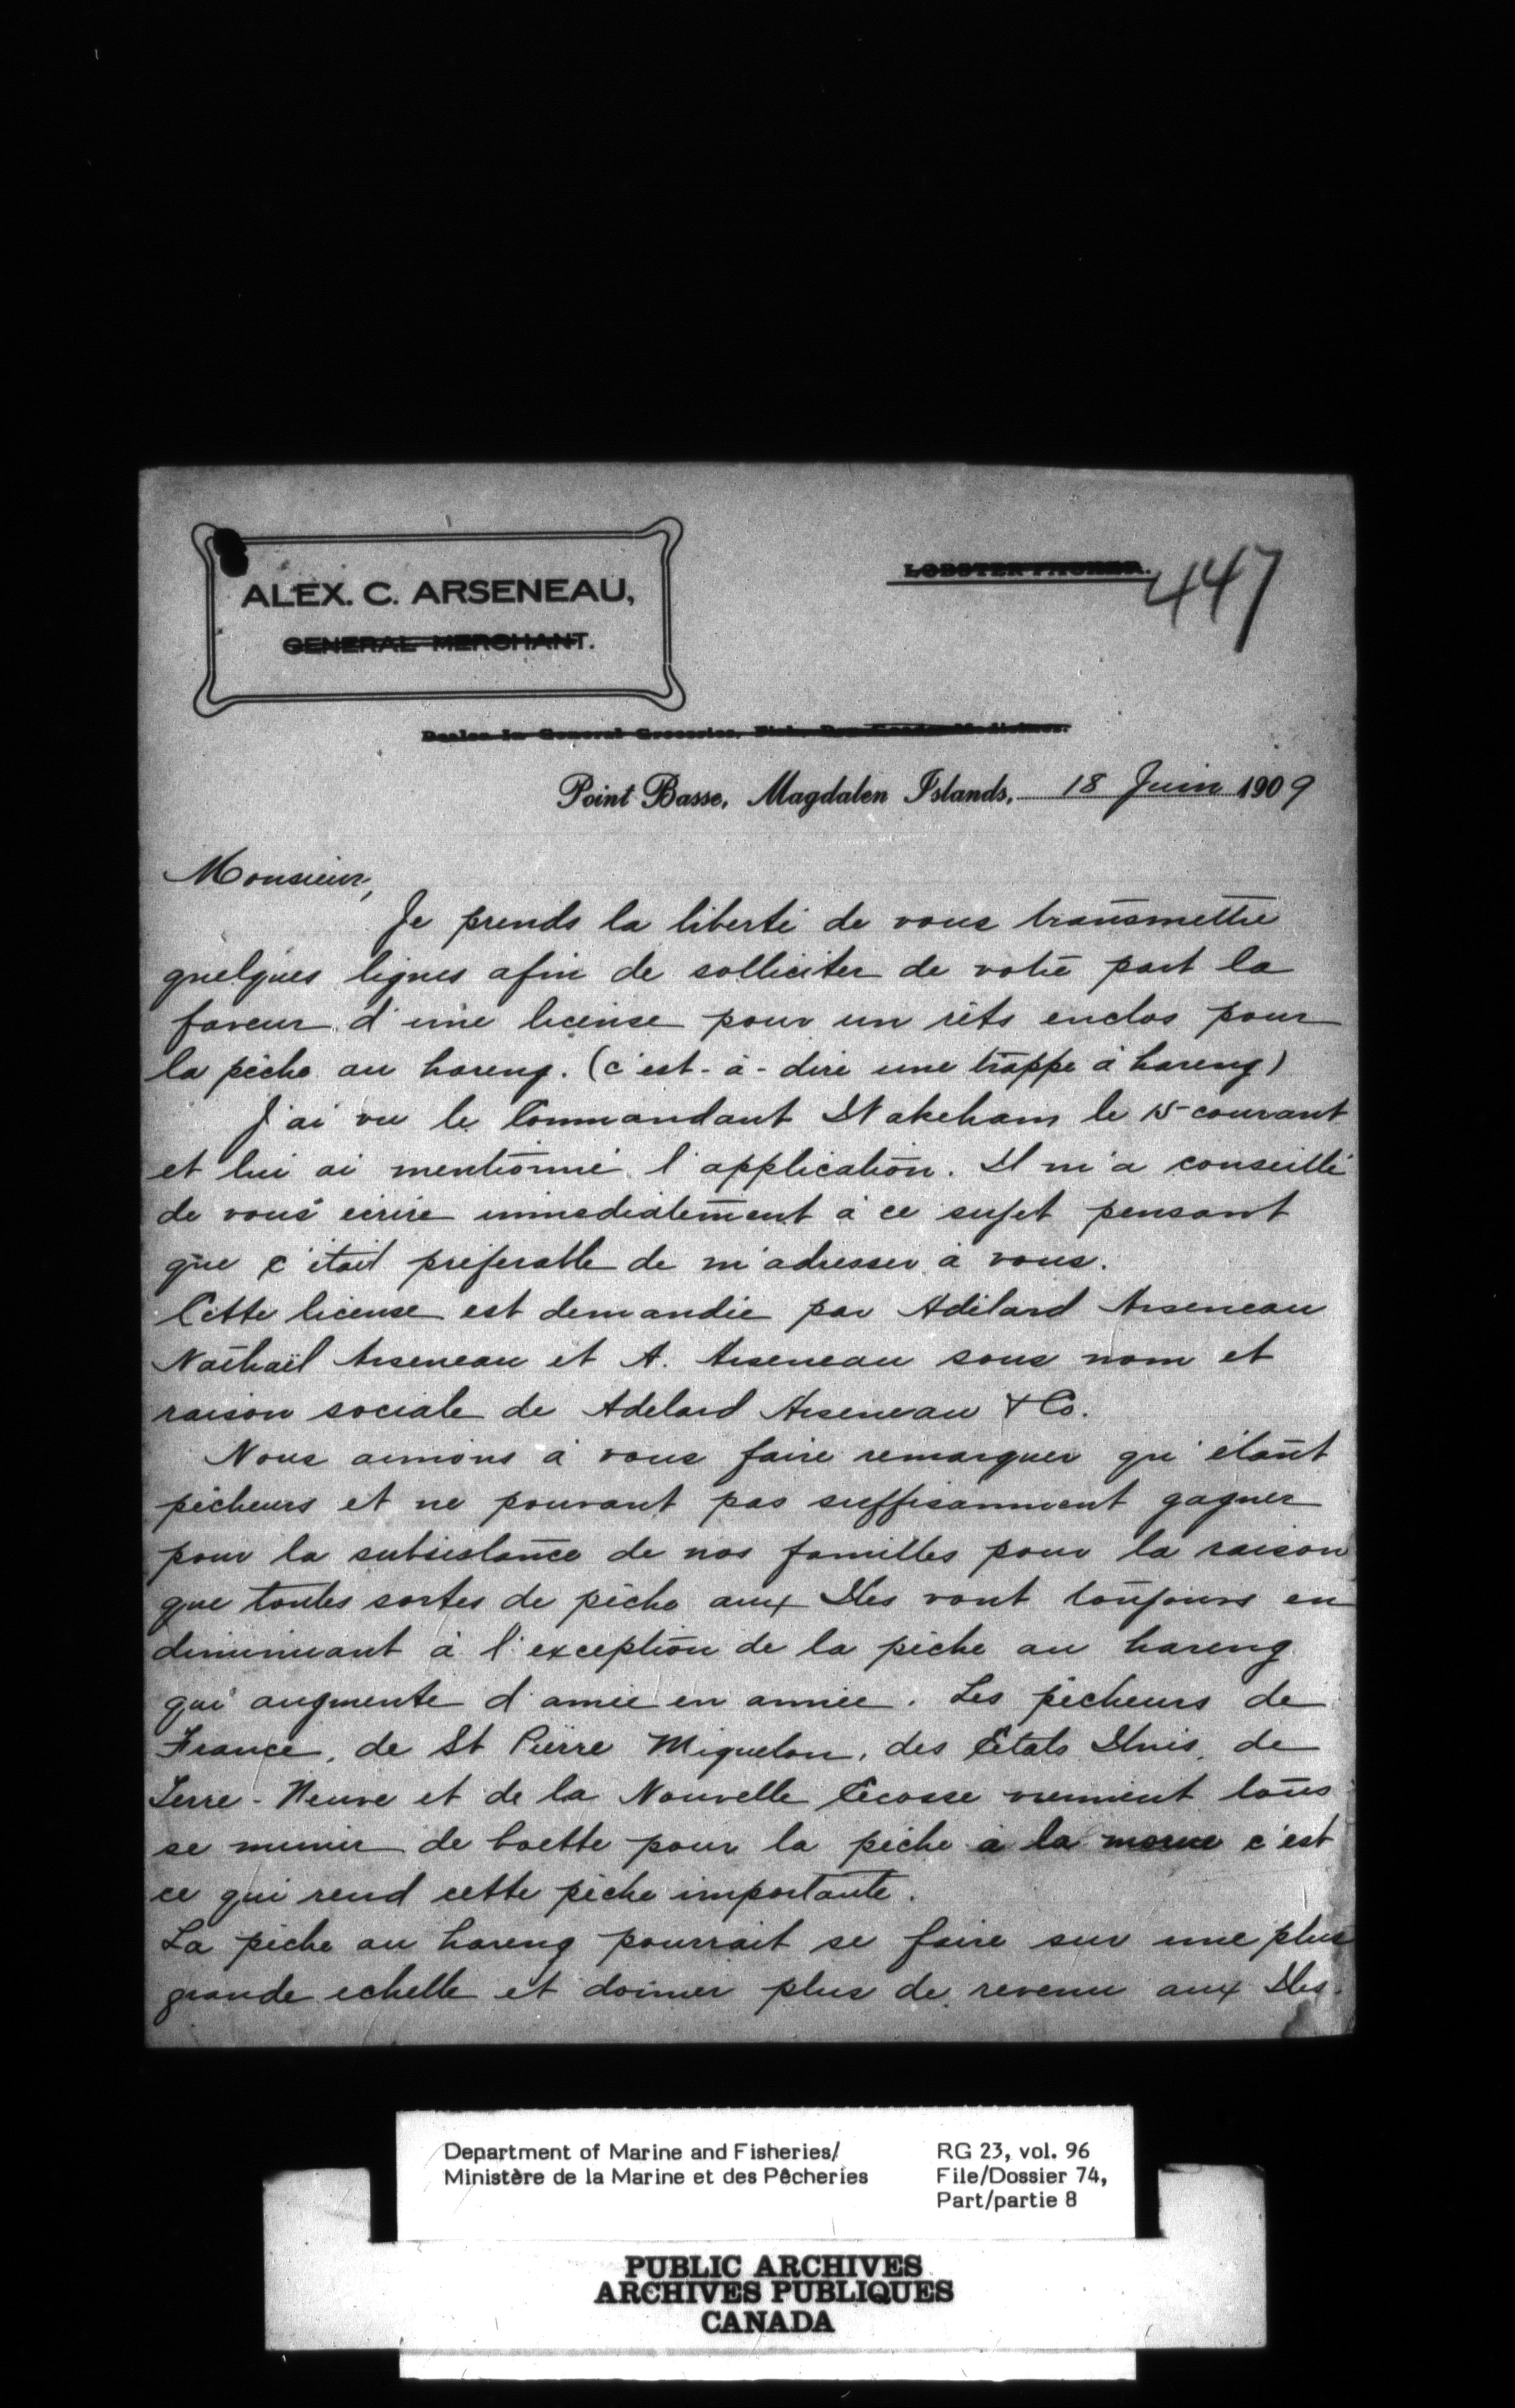 ALEX. C. ARSENEAU,
GENERAL MERCHANT.
LOBSTER PACKER.
447
Dealer In General Groceries, Fish, Dry Goods, Medicines.
Point Basse, Magdalen Islands, 18 Juin 1909
Monsieur,
Je prends la liberté de vous transmettre
quelques lignes afin de solliciter de votre part la
faveur d'une license pour un rêts enclos pour
la pêche au hareng. (c'est-à-dire une trappe à hareng)
J'ai vu le Commandant Wakeham le 15 courant
et lui ai mentionné l'application. Il m'a conseillé
de vous écrire immediatement à ce sujet pensant
que c'était preferable de m'adresser à vous.
Cette license est demandée par Adélard Arseneau
Nathaël Arseneau et A. Arseneau sous nom et
raison sociale de Adelard Arseneau & Co.
Nous aimons à vous faire remarquer qu'étant
pêcheurs et ne pouvant pas suffisamment gagner
pour la subsistance de nos familles pour la raison
que toutes sortes de pêche aux Iles vont toujours en
diminuant à l'exception de la pêche au hareng
qui augmente d'année en année. Les pêcheurs de
France, de St Pierre Miquelon, des Etats Unis, de
Terre-Neuve et de la Nouvelle Ecosse viennent tous
se munir de boette pour la pêche à la morue c'est
ce qui rend cette pêche importante.
La pêche au hareng pourrait se faire sur une plus
grande echelle et donner plus de revenu aux Iles.
Department of Marine and Fisheries/
Ministère de la Marine et des Pêcheries
RG 23, vol. 96
File/Dossier 74,
Part/partie 8
PUBLIC ARCHIVES
ARCHIVES PUBLIQUES
CANADA